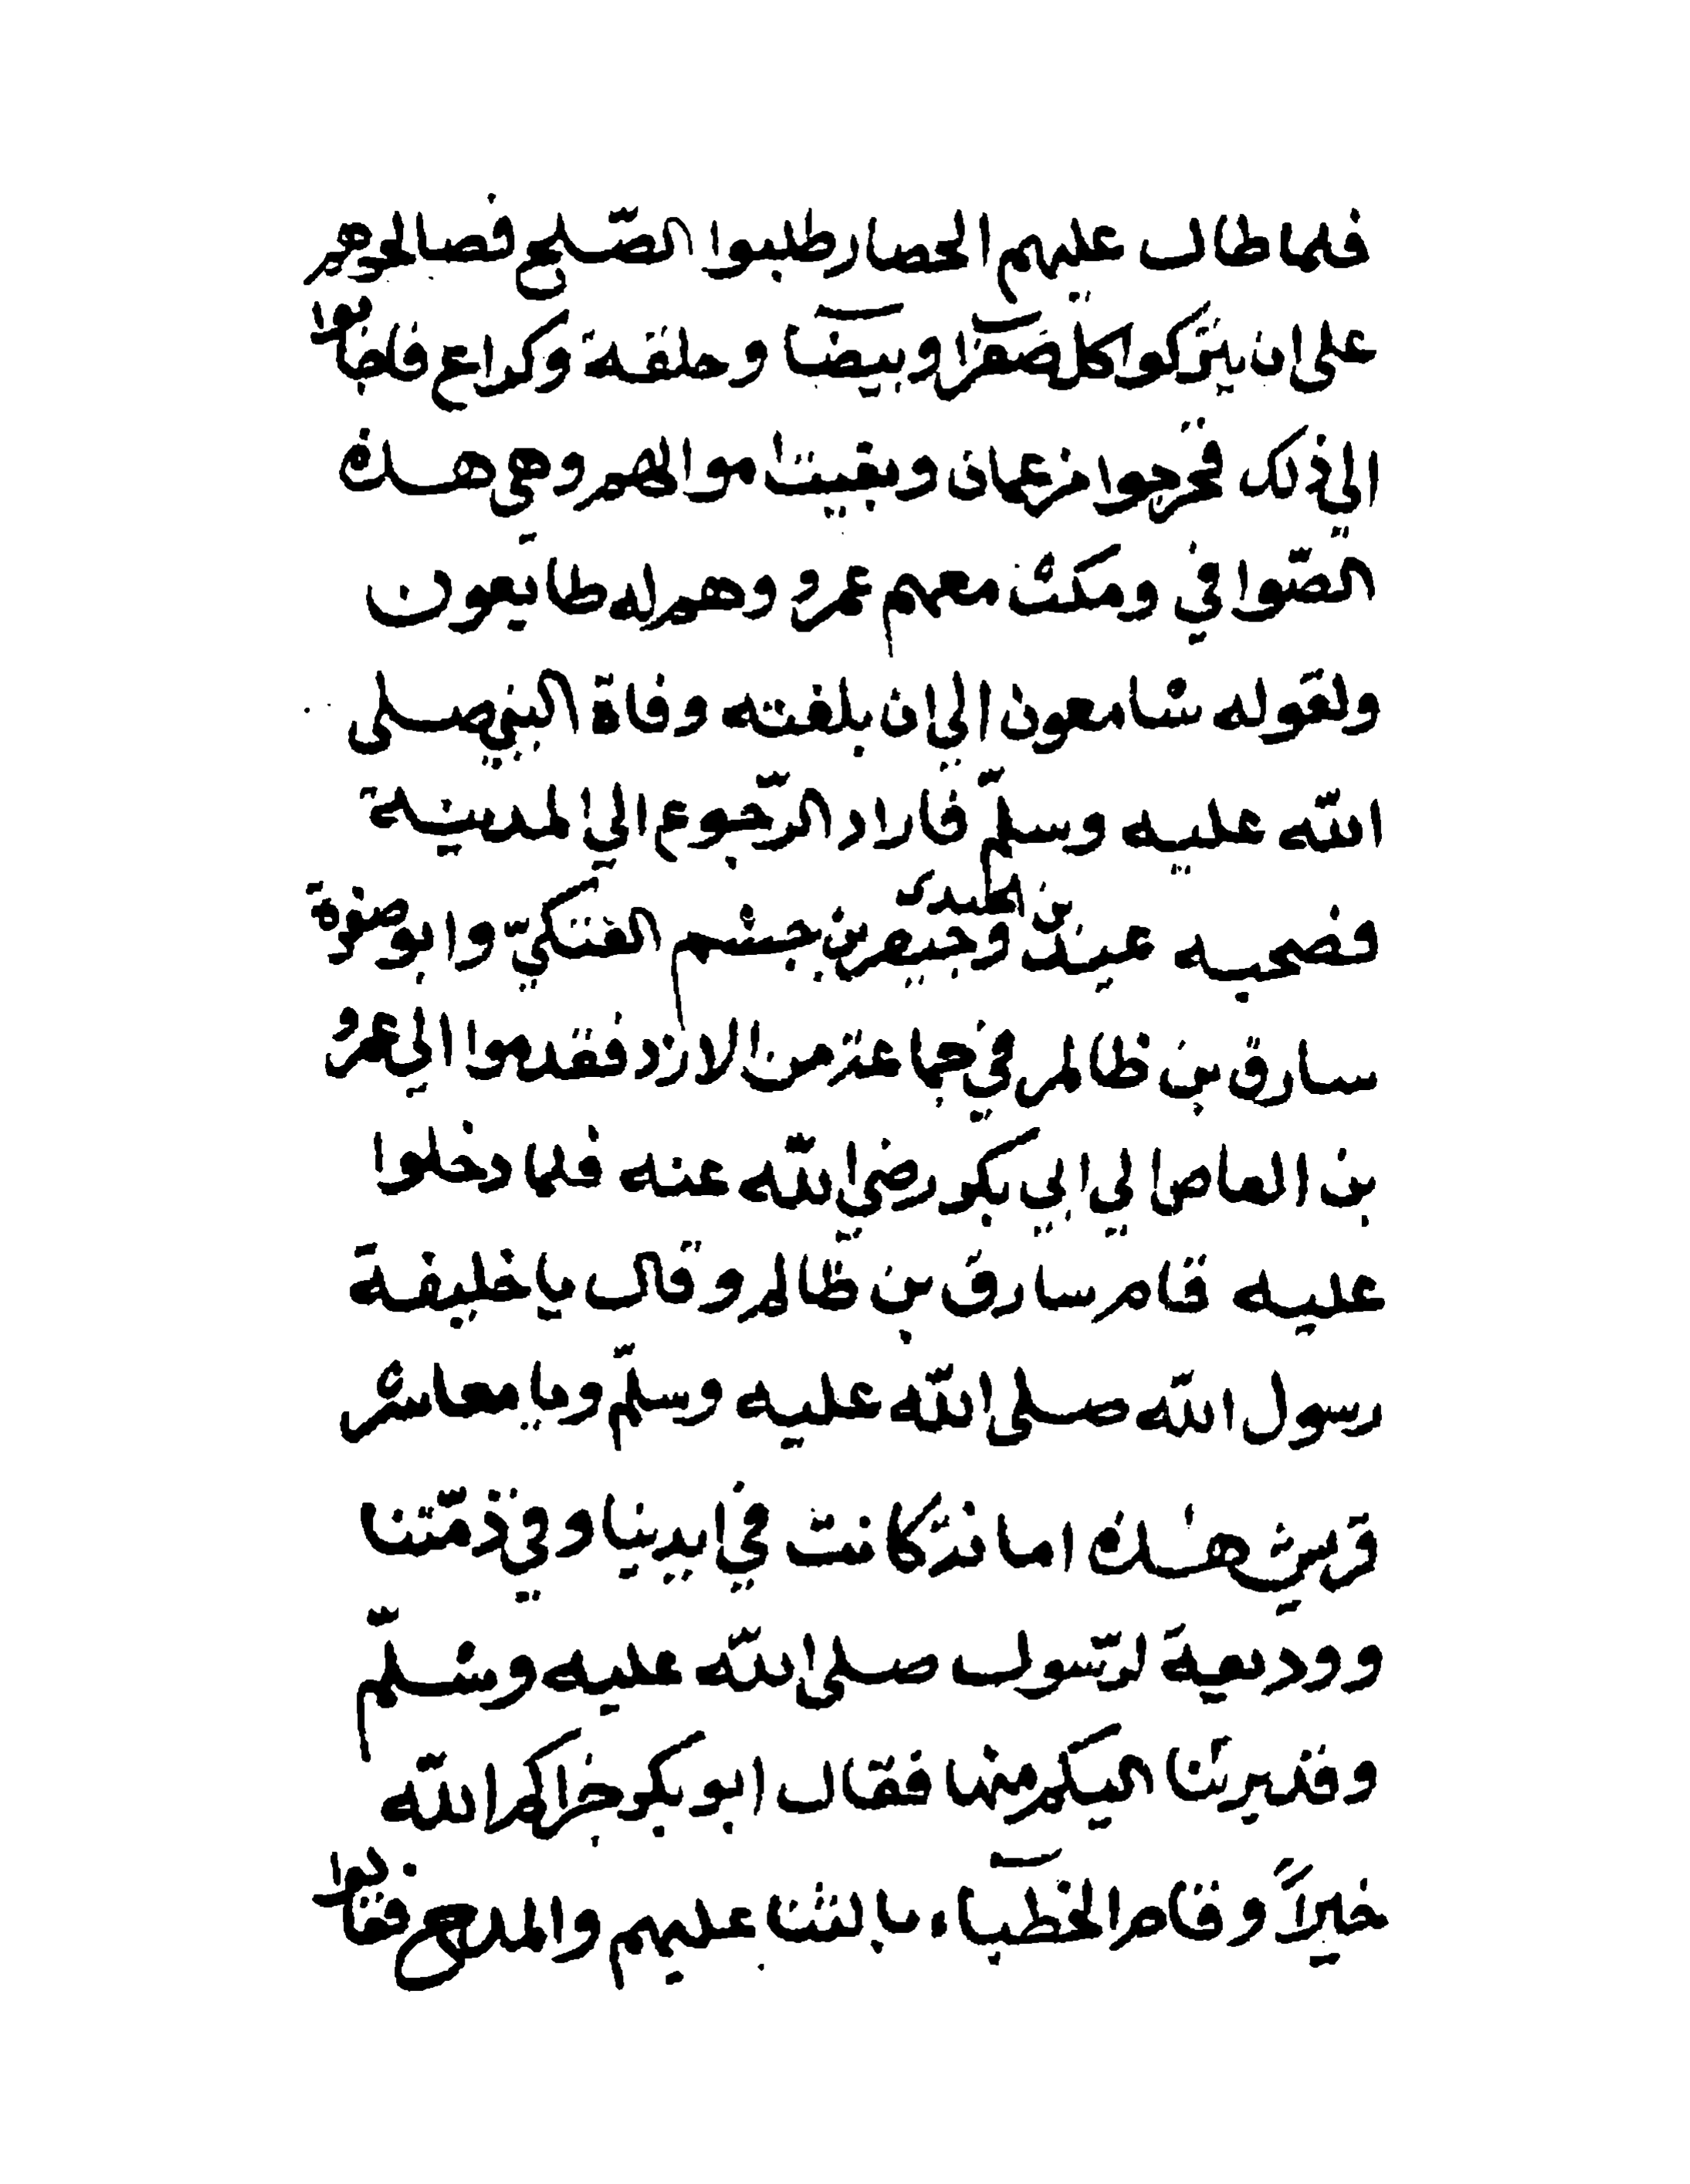 فلما طال عليهم الحصار طلبوا الصّلح فصالحوهم
على ان يتركوا كل صفرآ وبيضآ وحلقة وكراع فاجابوا
الي ذلك فخرجوا من عمان وبقيت اموالهم وهي هذه
الصّوافي ومكث معهم عمرو وهم له طايعون
ولقوله سامعون الي ان بلغته وفاة النبي صلى
الله عليه وسلّم فاراد الرّجوع الي المدينة
فصحبه عبد بن الجلندى وجيفر بن جشم العتكيّ وابو صفرة
سارق بن ظالم في جماعة من الازد فقدموا الي عمرو
بن العاص الي ابي بكر رضي الله عنه فلما دخلوا
عليه قام سارق بن ظالم وقال يا خليفة
رسول الله صلى الله عليه وسلّم ويا معاشر
قريش هذه امانة كانت في ايدينا وفي ذمّتنا
ووديعة لرّسول صلى الله عليه وسلّم
وقد برئنا اليكم منها فقال ابو بكر جزاكم الله
خيراً وقام الخطبآء بالثنا عليهم والمدح فقالوا